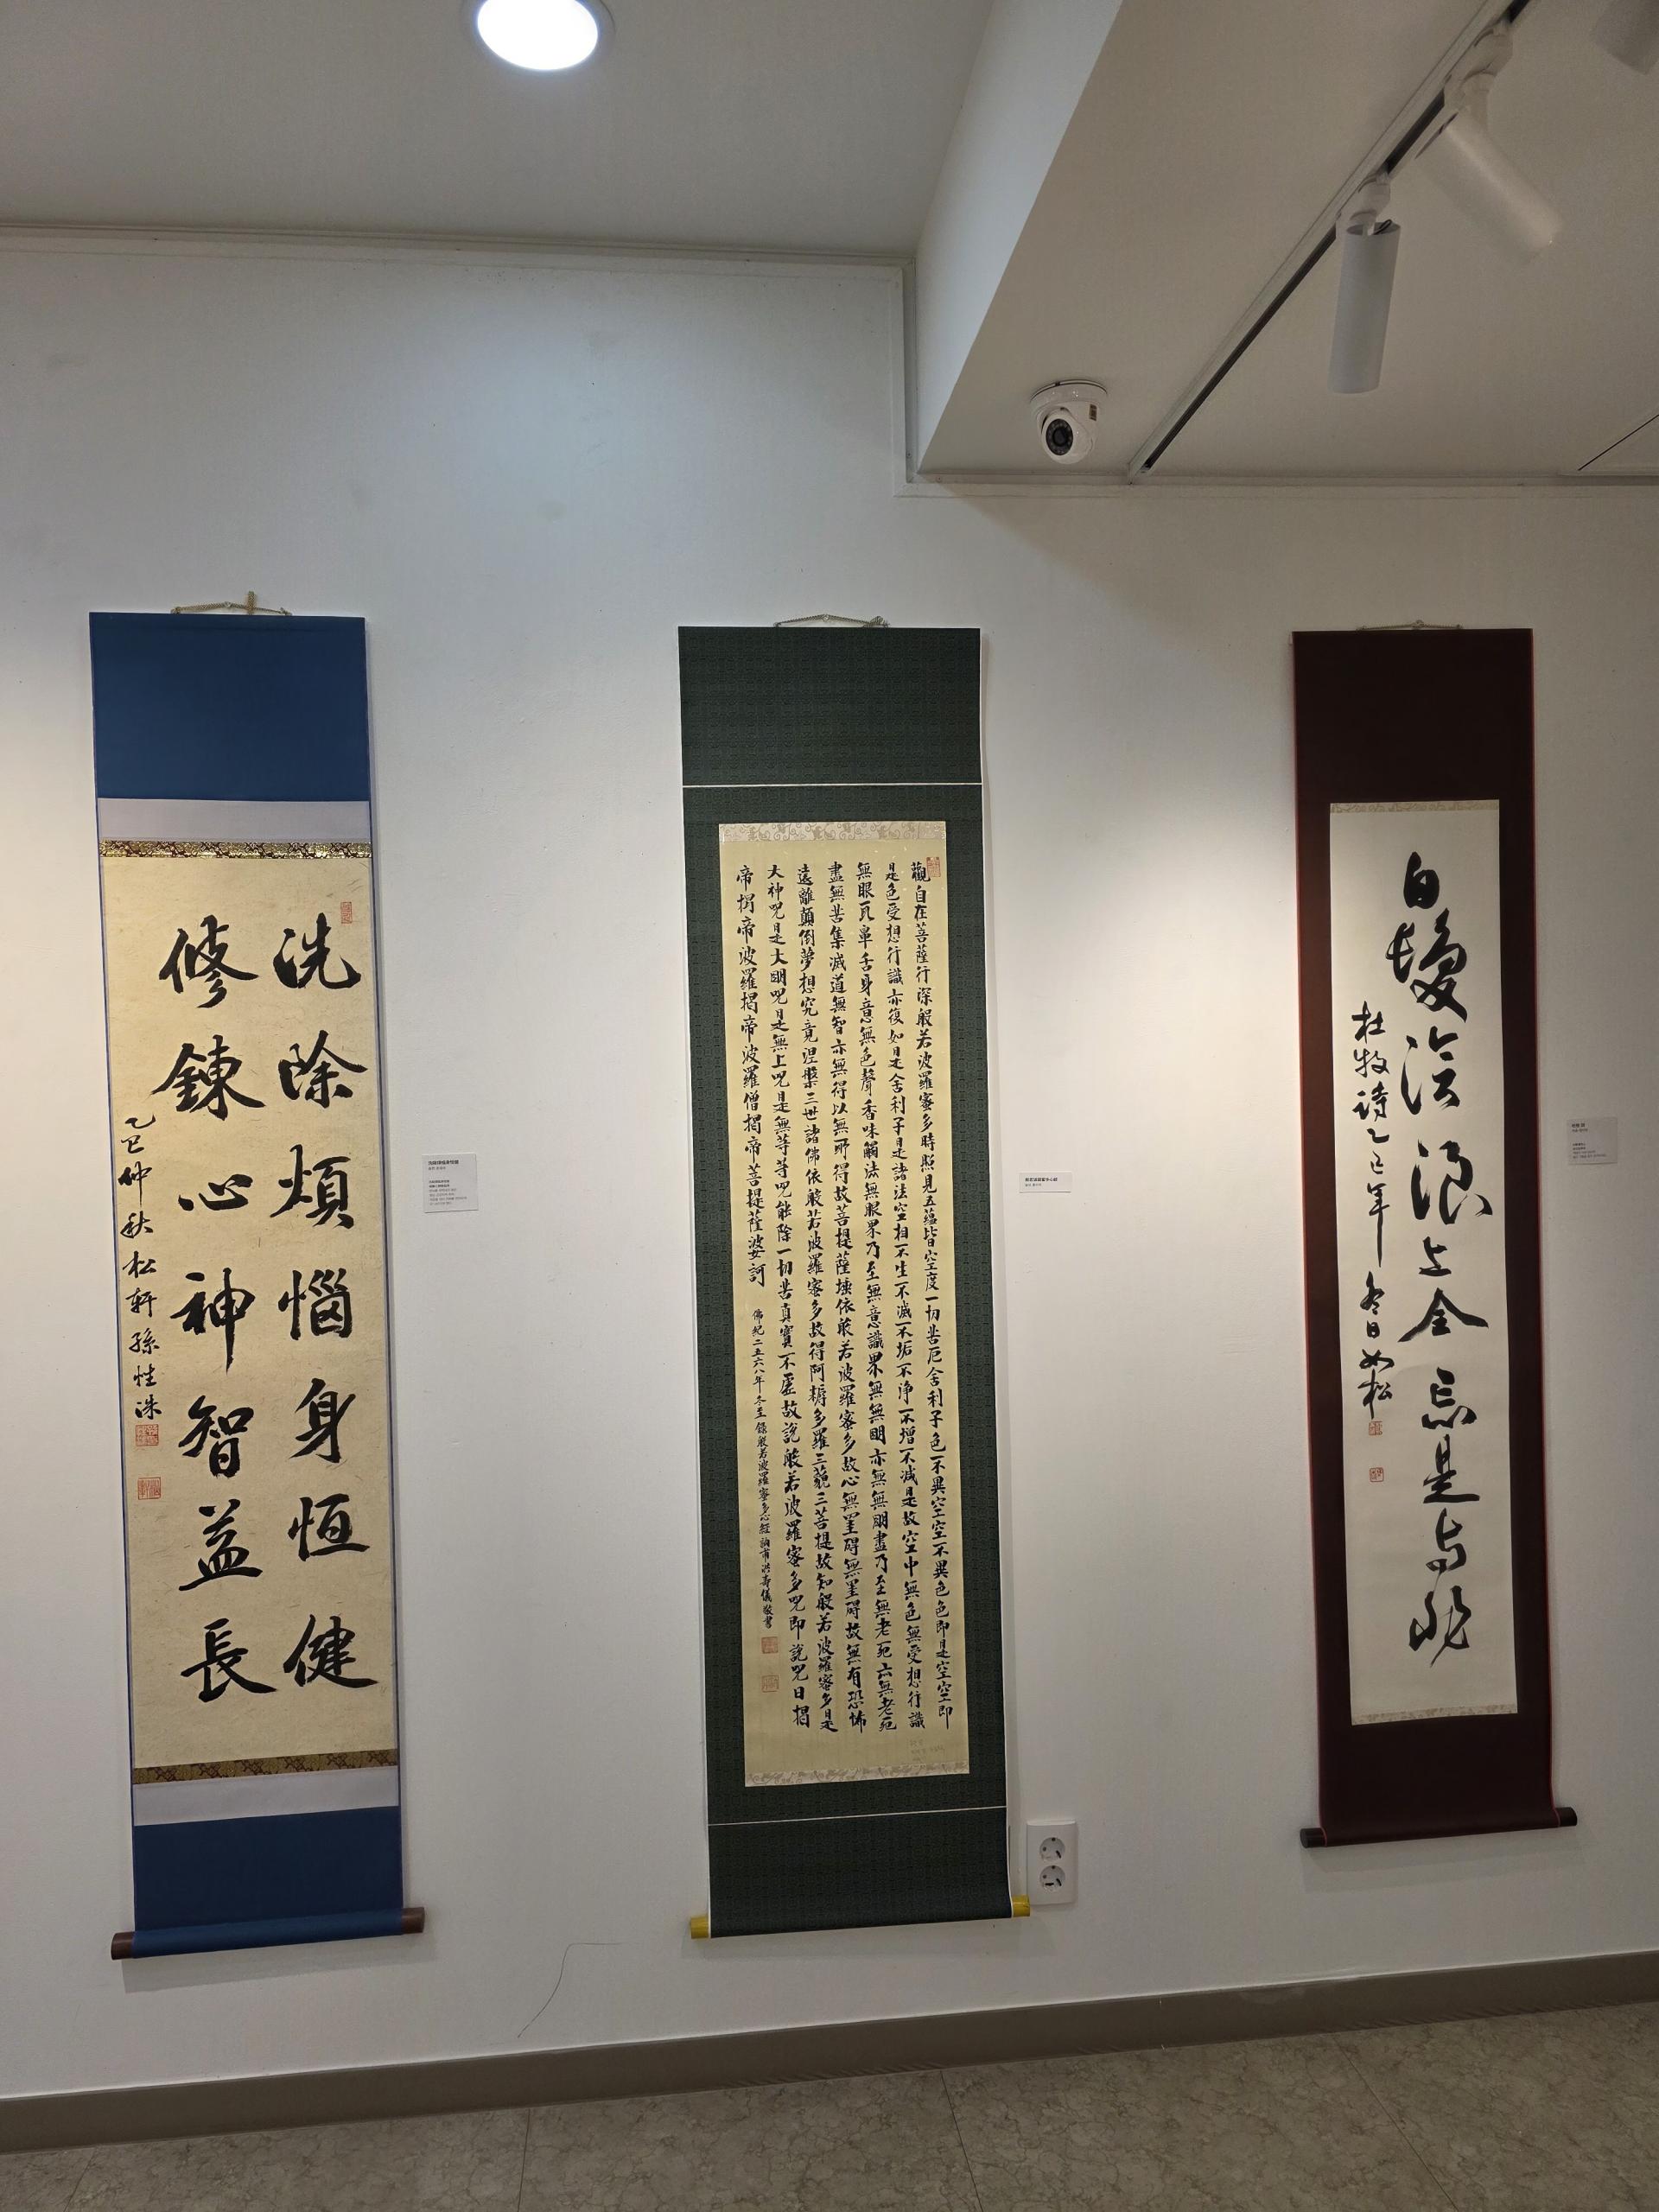 洗除煩惱身恒健
修鍊心神智益長
乙巳仲秋松軒孫性洙
觀自在菩薩行深般若波羅蜜多時照見五蘊皆空度一切苦厄舍利子色不異空空不異色色即是空空即
是色受想行識亦復如是舍利子是諸法空相不生不滅不垢不淨不增不減是故空中無色無受想行識
無眼耳鼻舌身意無色聲香味觸法無眼界乃至無意識界無無明亦無無明盡乃至無老死亦無老死
盡無苦集滅道無智亦無得以無所得故菩提薩埵依般若波羅蜜多故心無罣碍無罣碍故無有恐怖
遠離顛倒夢想究竟涅槃三世諸佛依般若波羅蜜多故得阿耨多羅三藐三菩提故知般若波羅蜜多是
大神呪是大明呪是無上呪是無等等呪能除一切苦真實不虛故說般若波羅蜜多呪即說呪曰揭
帝揭帝波羅揭帝波羅僧揭帝菩提薩婆訶
佛紀二五六八年冬至錄般若波羅蜜多心經 洪壽儀敬書
白髮滄浪上全忘是與非
杜牧詩乙巳年冬日如松